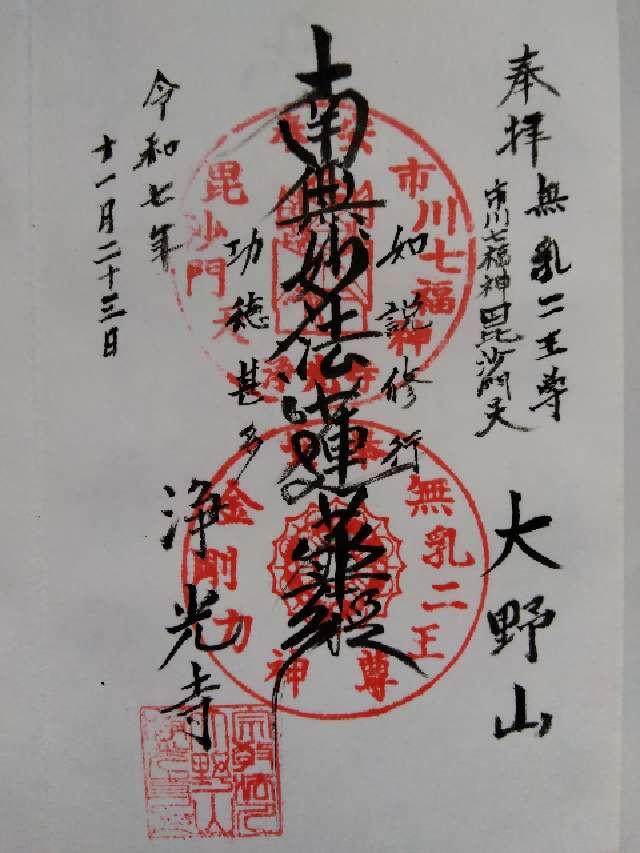 奉拝
無乳二王尊
市川七福神毘沙門天
大野山
如説修行
南無妙法蓮華経
功徳甚多
浄光寺
令和七年
十一月二十三日
市川七福神
毘沙門天
無乳二王尊
金剛力神